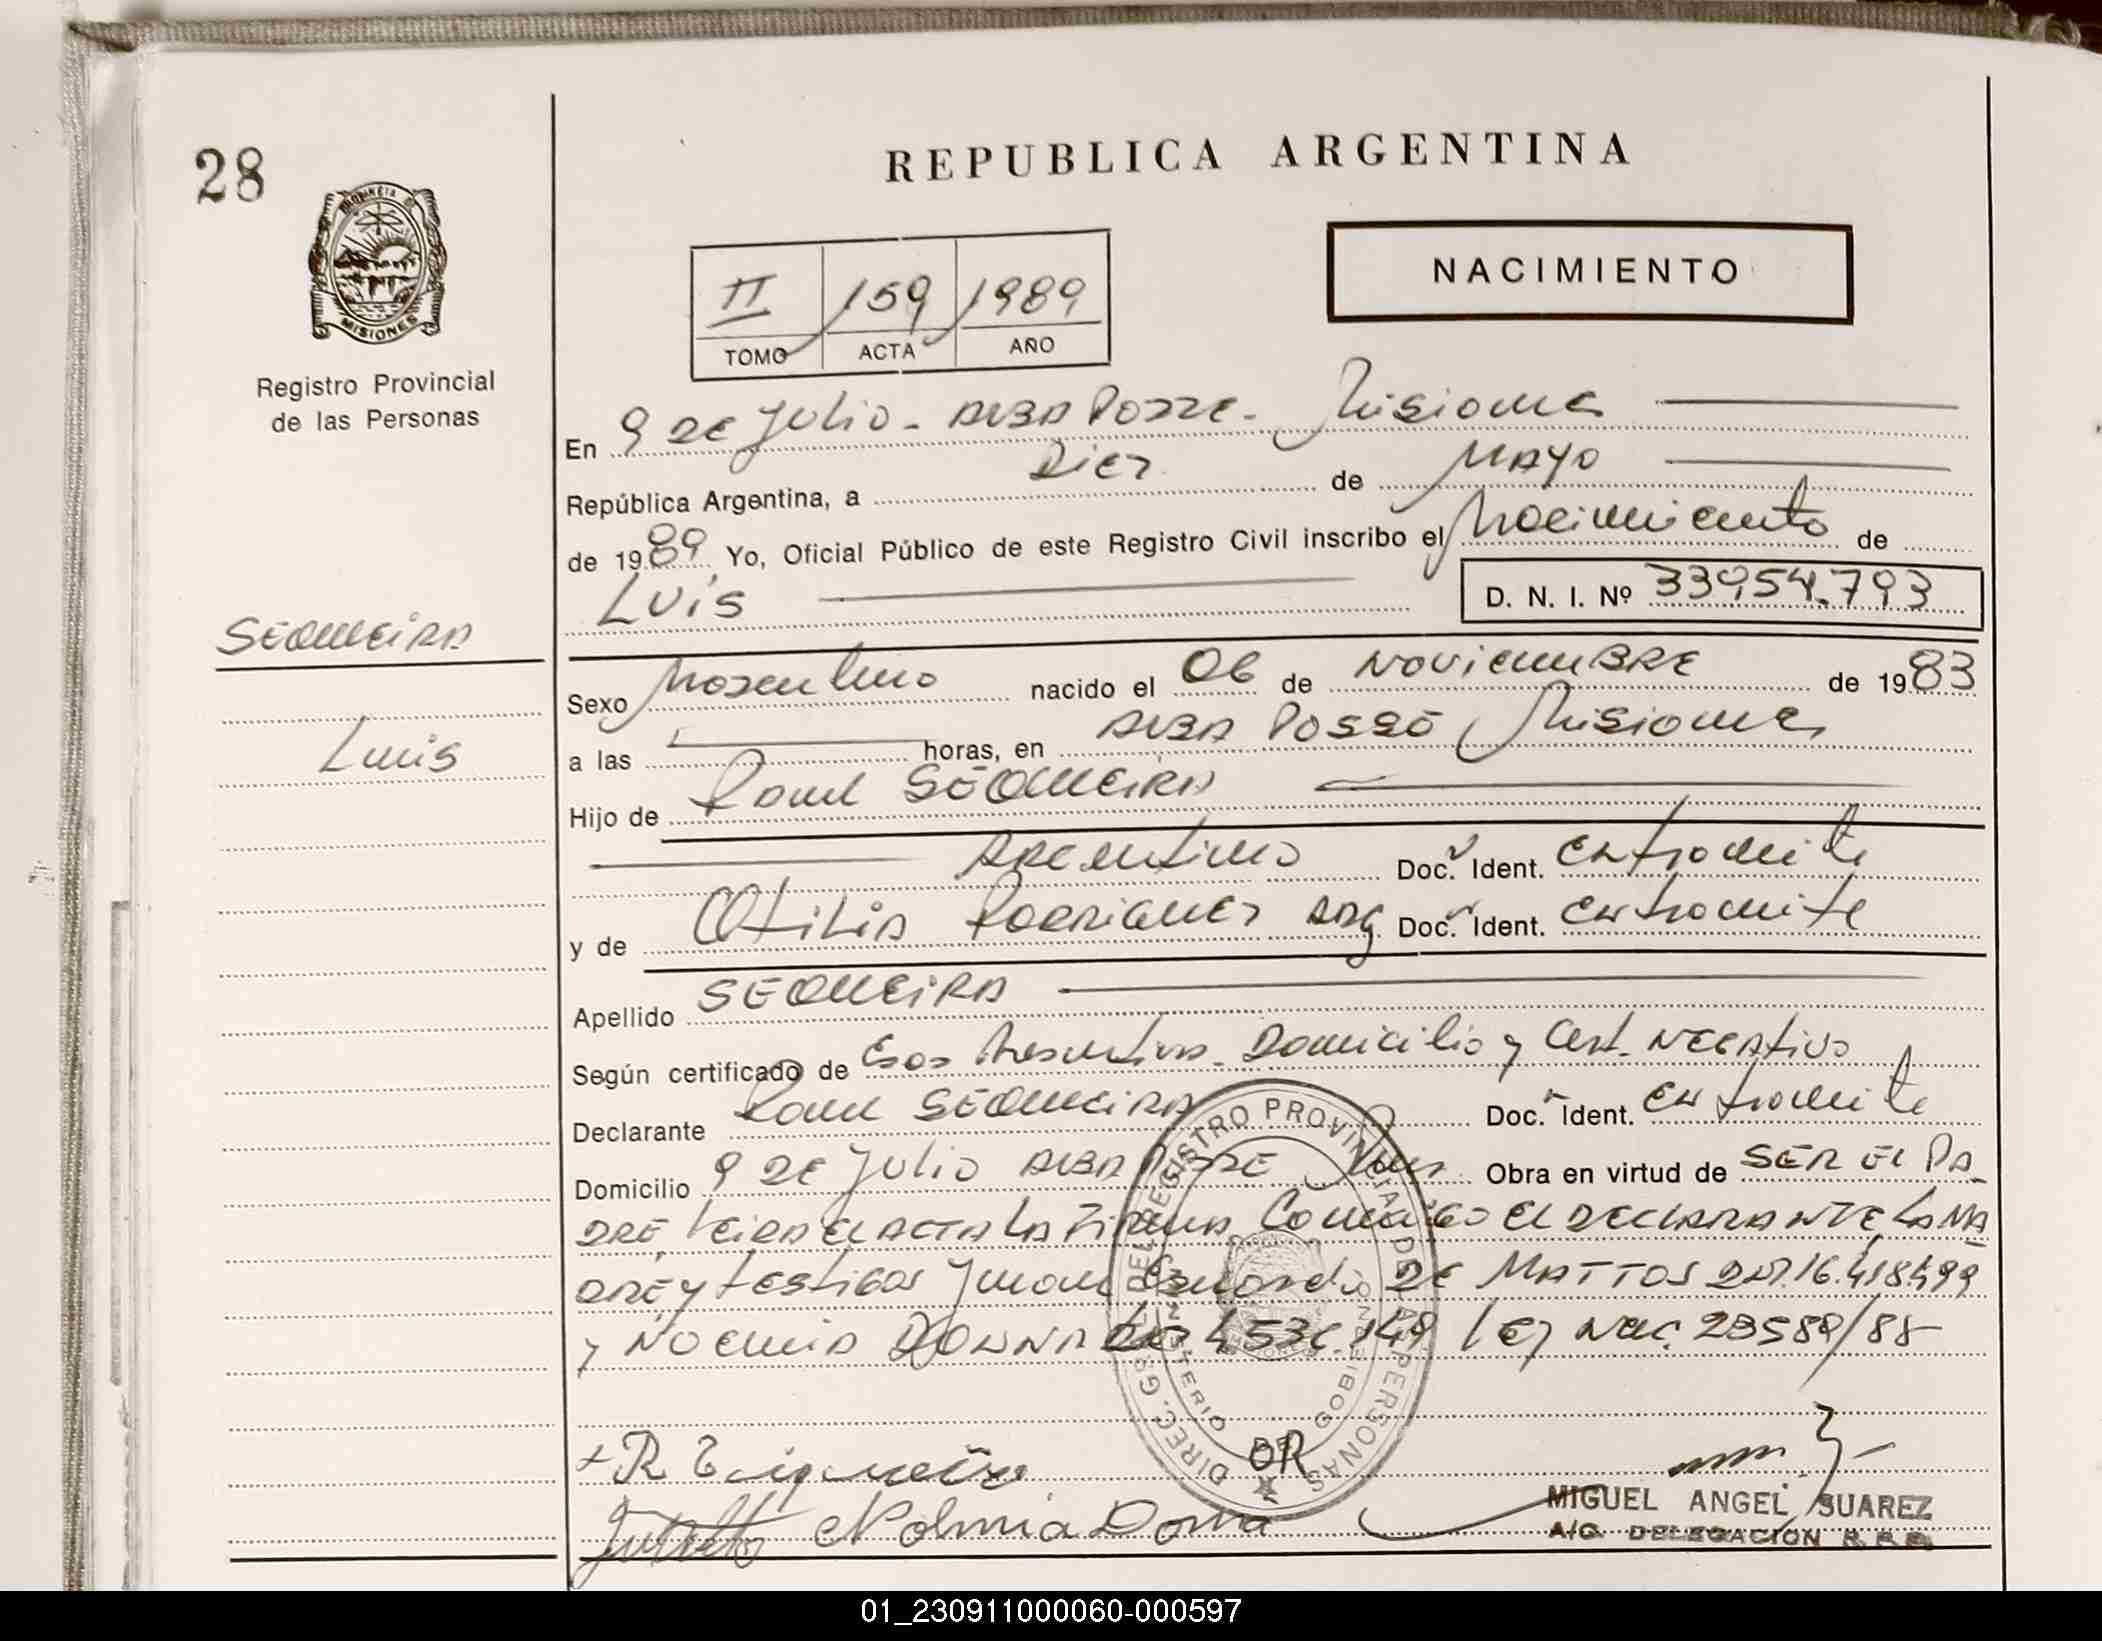 28
REPUBLICA ARGENTINA
PROVINCIA DE
MISIONES
NACIMIENTO
II 159 1989
TOMO ACTA AÑO
Registro Provincial
de las Personas
En 9 DE Julio - ALBA POSSE - Misiones
República Argentina, a Diez de MAYO
de 1989 Yo, Oficial Público de este Registro Civil inscribo el Nacimiento de
LUIS D. N. I. Nº 33954.793
SEQUEIRA
Sexo Masculino nacido el 06 de NOVIEMBRE de 1983
Luis
a las horas, en ALBA POSSE Misiones
Hijo de Raul SEQUEIRA
ARGENTINO Doc. Ident. En tramite
y de Otilia RODRIGUEZ ARG Doc. Ident. En tramite
Apellido SEQUEIRA
Según certificado de Domicilio y Cert. NEGATIVO
Declarante Raul SEQUEIRA Doc. Ident. En tramite
Domicilio 9 DE Julio ALBA POSSE Obra en virtud de SER EL PA-
DRE LEIDA EL ACTA LA FIRMA CONMIGO EL DECLARANTE LA MA
DRE y testigos Juan DE MATTOS DNI.16.418499
y NOEMIA LEY NAC. 23589/88
DIREC. GRAL. DEL REGISTRO PROVINCIAL DE LA PERSONAS
MINISTERIO DE GOBIERNO
OR
MIGUEL ANGEL SUAREZ
A/C. DELEGACION R.P.P.
01_230911000060-000597